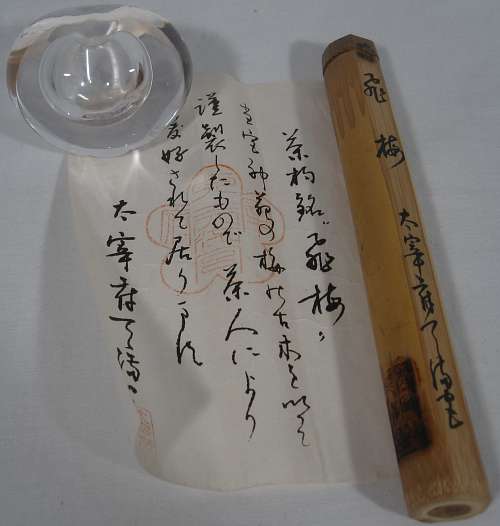 飛梅
太宰府天満宮
茶杓銘〝飛梅〟
当宮神苑の梅の古木を以て
謹製したもので茶人により
愛好されて居ります
太宰府天満宮